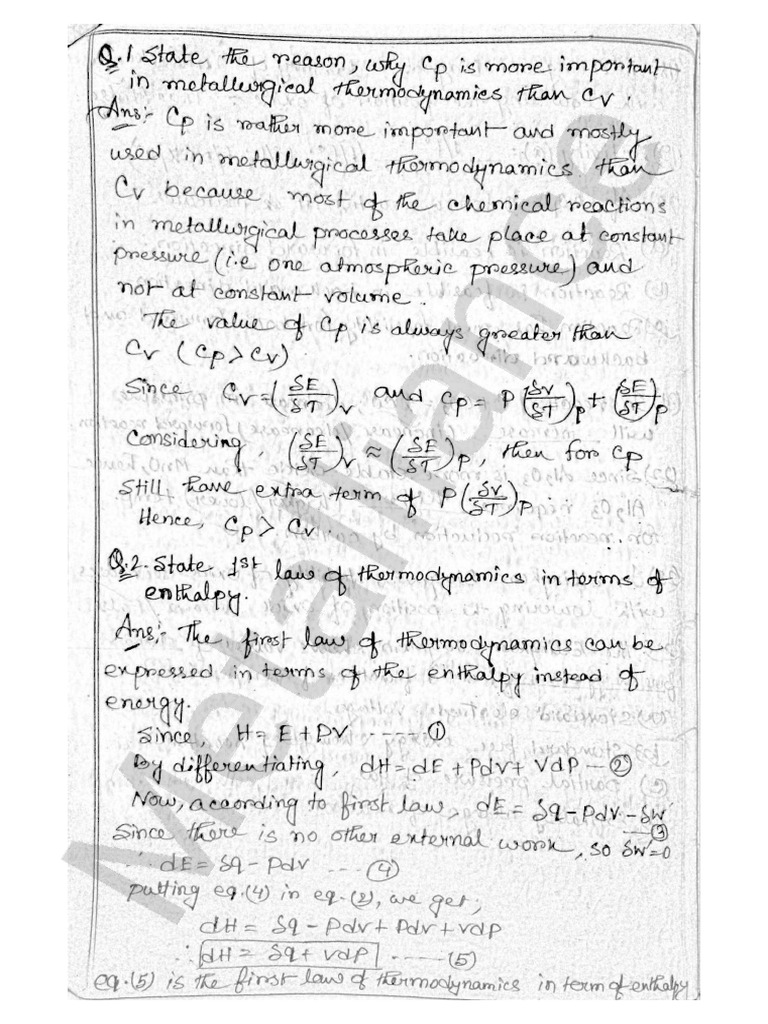 Q.1 State the reason, why Cp is more important
in metallurgical thermodynamics than Cv.
Ans:- Cp is rather more important and mostly
used in metallurgical thermodynamics than
Cv because most of the chemical reactions
in metallurgical processes take place at constant
pressure (i.e one atmospheric pressure) and
not at constant volume.
The value of Cp is always greater than
Cv (Cp > Cv)
Since Cv = (δE/δT)v and Cp = P(δV/δT)p + (δE/δT)p
Considering, (δE/δT)v ≈ (δE/δT)p, then for Cp
Still have extra term of P(δV/δT)p
Hence, Cp > Cv
Q.2. State 1st law of thermodynamics in terms of
enthalpy.
Ans:- The first law of thermodynamics can be
expressed in terms of the enthalpy instead of
energy.
Since, H = E + PV ------ ①
By differentiating, dH = dE + Pdv + VdP — ②
Now, according to first law, dE = δq - Pdv - δW' — ③
Since there is no other external work, so δW'=0
∴ dE = δq - Pdv ---- ④
putting eq.(4) in eq.(2), we get;
dH = δq - Pdv + Pdv + vdP
∴ dH = δq + VdP ------ (5)
eq.(5) is the first law of thermodynamics in term of enthalpy
Metallkance